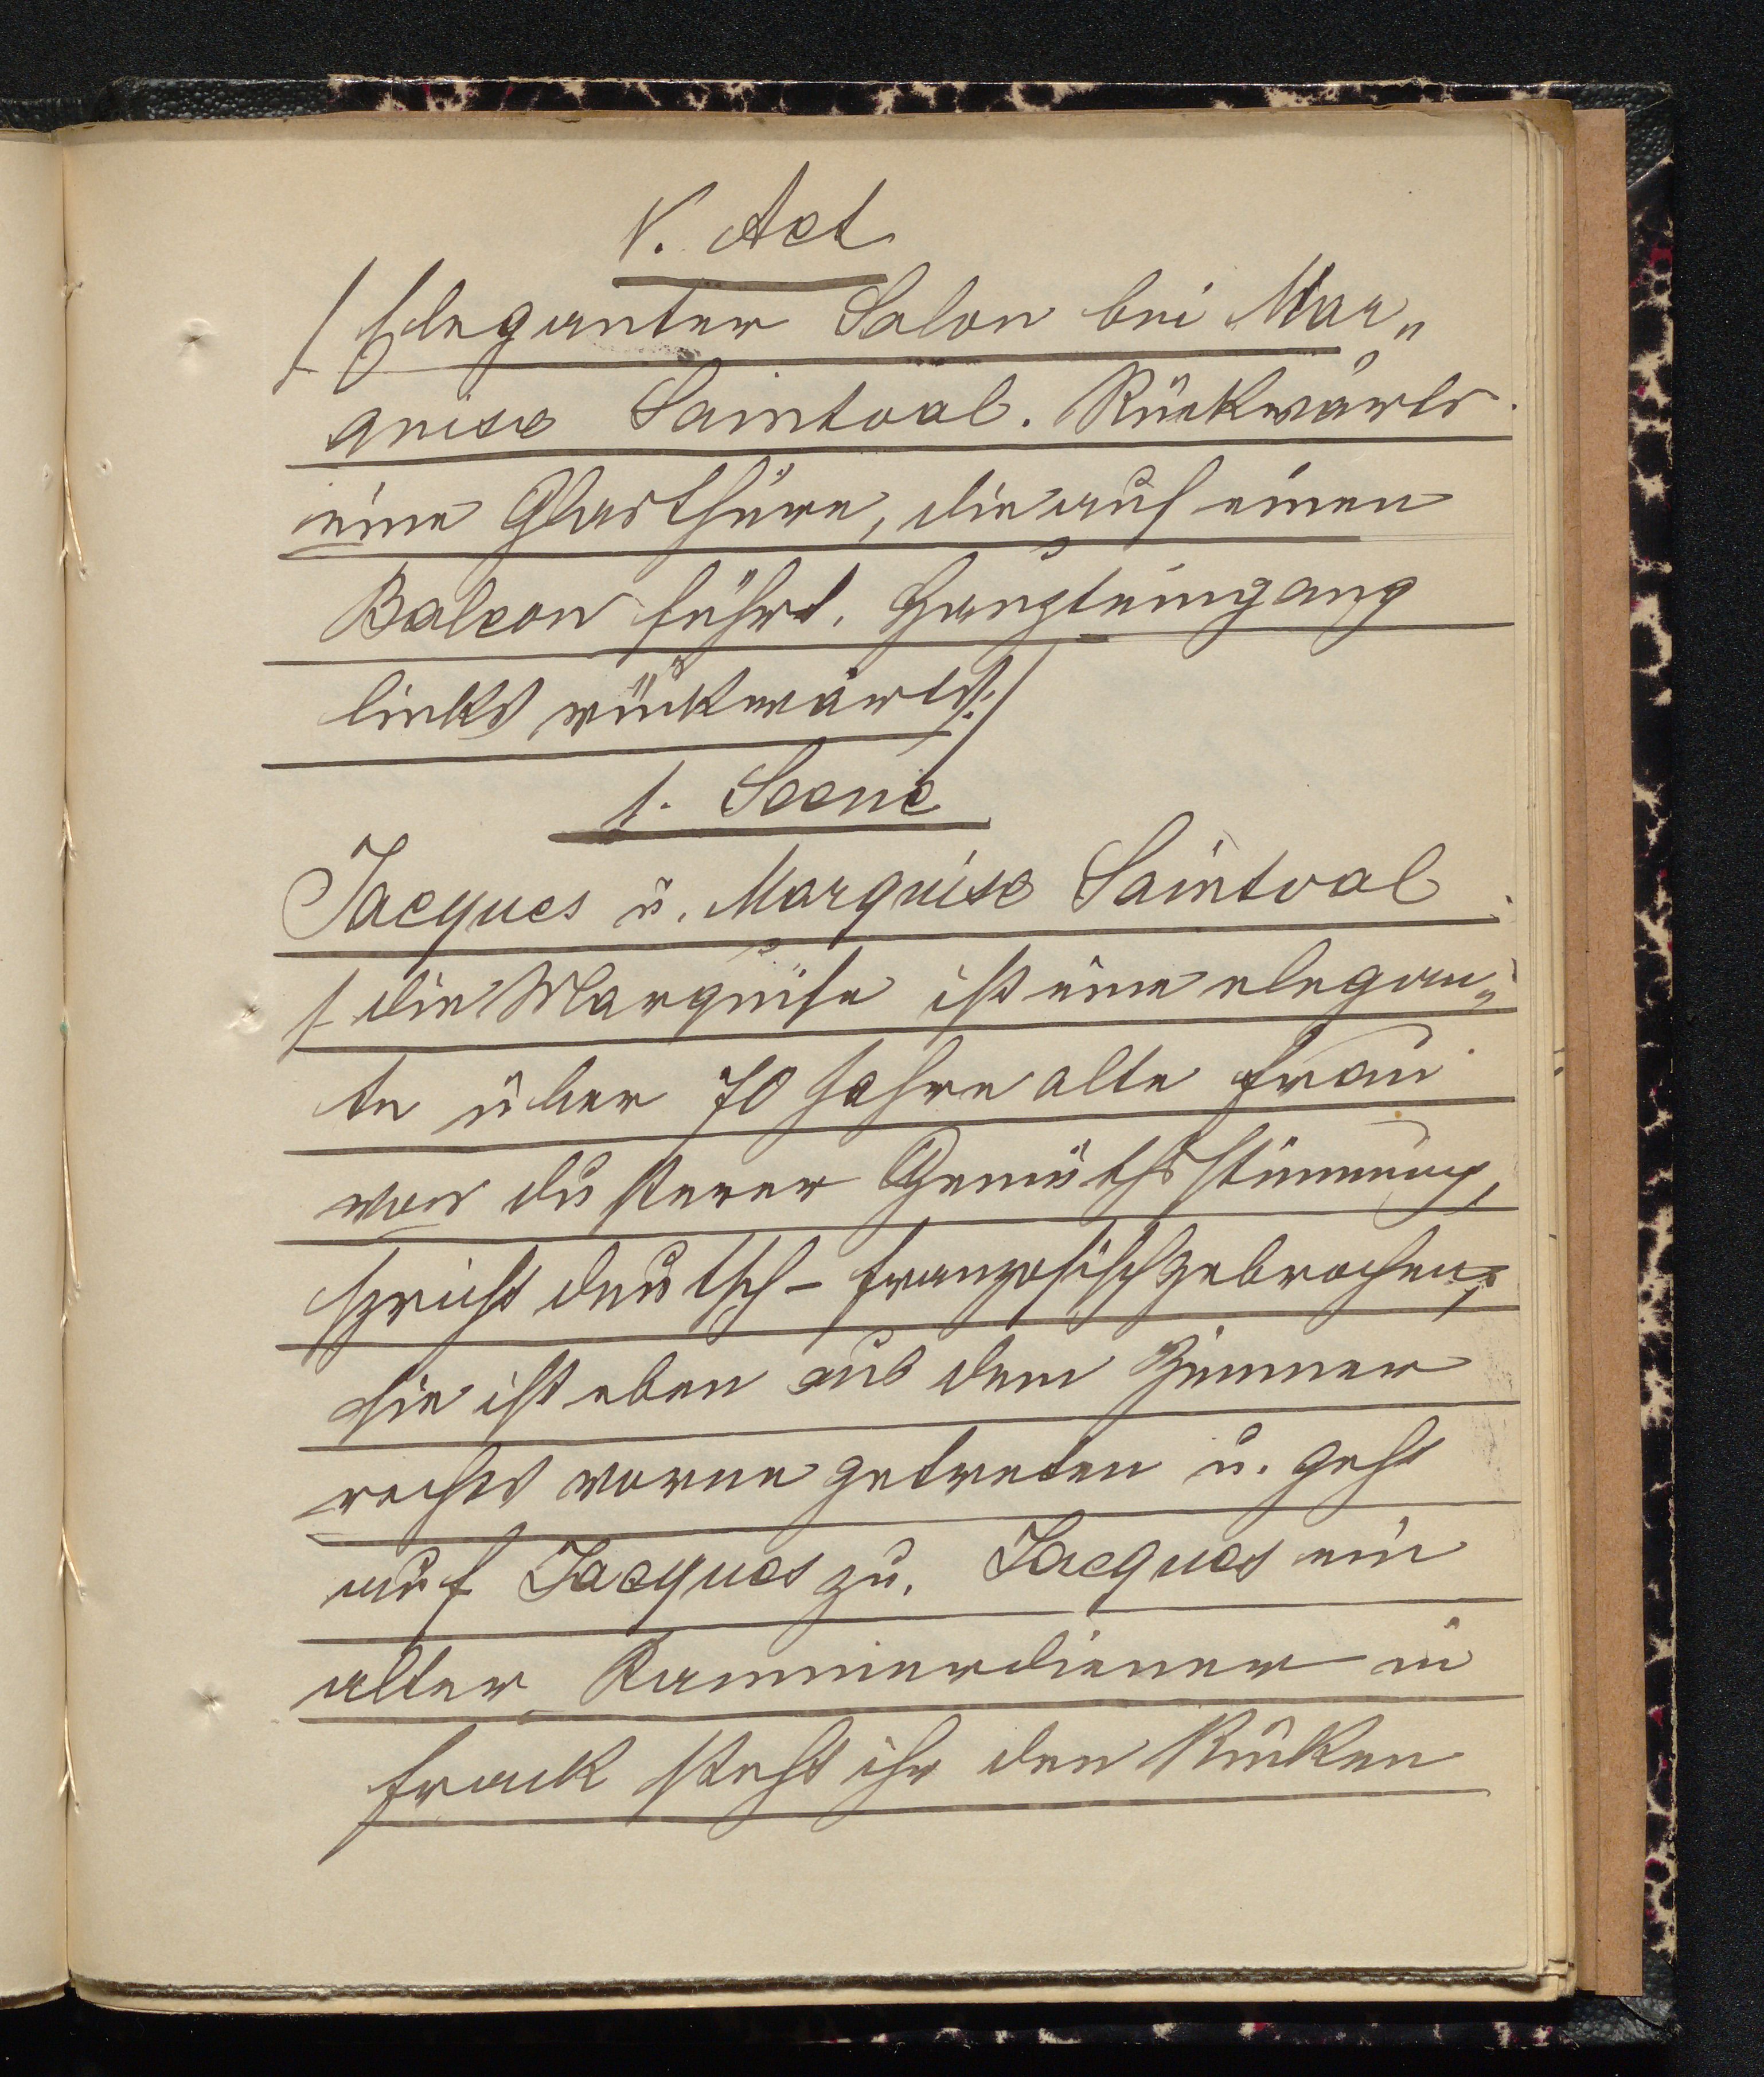 V. Act
/ Eleganter Salon bei Mar„
quise Saintval. Rückwärts
eine Glasthüre, die auf einen
Balcon führt. Haupteingang
links rückwärts./
1. Scene
Jacques u. Marquise Saintval
/ die Marquise ist eine elegan„
te über 70 Jahre alte Frau
von düsterer Gemüthsstimmung,
spricht deutsch-französisch gebrochen,
sie ist eben aus dem Zimmer
rechts vorne getreten u. geht
auf Jacques zu. Jacques ein
alter Kammerdiener in
Frack steht ihr den Rücken